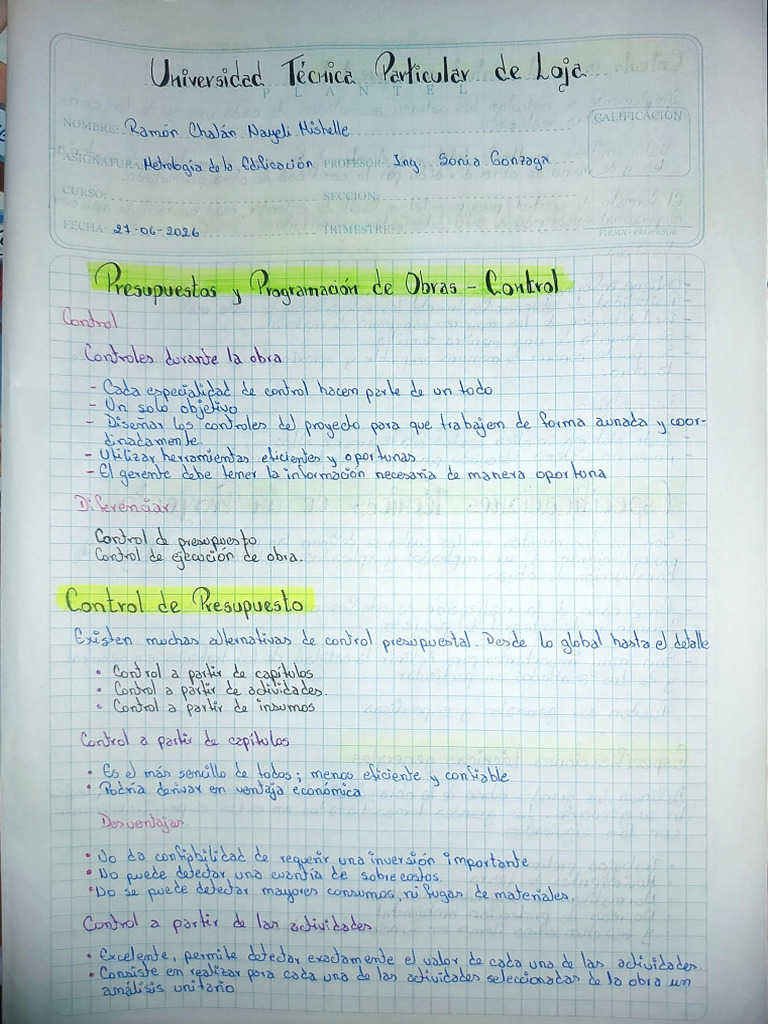 Universidad Técnica Particular de Loja
PLANTEL
NOMBRE: Ramón Chalán Nayeli Mishelle
CALIFICACIÓN
ASIGNATURA: Metrología de la Edificación PROFESOR: Ing. Sonia Gonzaga
CURSO: SECCIÓN:
FECHA: 27-06-2026 TRIMESTRE:
FIRMA - PROFESOR
Presupuestos y Programación de Obras - Control
Control
Controles durante la obra
- Cada especialidad de control hacen parte de un todo
- Un solo objetivo
- Diseñar los controles del proyecto para que trabajen de forma aunada y coor-
dinadamente.
- Utilizar herramientas eficientes y oportunas
- El gerente debe tener la información necesaria de manera oportuna
Diferenciar
Control de presupuesto
Control de ejecución de obra.
Control de Presupuesto
Existen muchas alternativas de control presupuestal. Desde lo global hasta el detalle
• Control a partir de capítulos
• Control a partir de actividades.
• Control a partir de insumos
Control a partir de capítulos
• Es el más sencillo de todos; menos eficiente y confiable
• Podría derivar en ventaja económica
Desventajas
• No da confiabilidad de requerir una inversión importante
• No puede detectar una cuantía de sobrecostos
• No se puede detectar mayores consumos, ni fugas de materiales.
Control a partir de las actividades
• Excelente, permite detectar exactamente el valor de cada una de las actividades.
• Consiste en realizar para cada una de las actividades seleccionadas de la obra un
análisis unitario